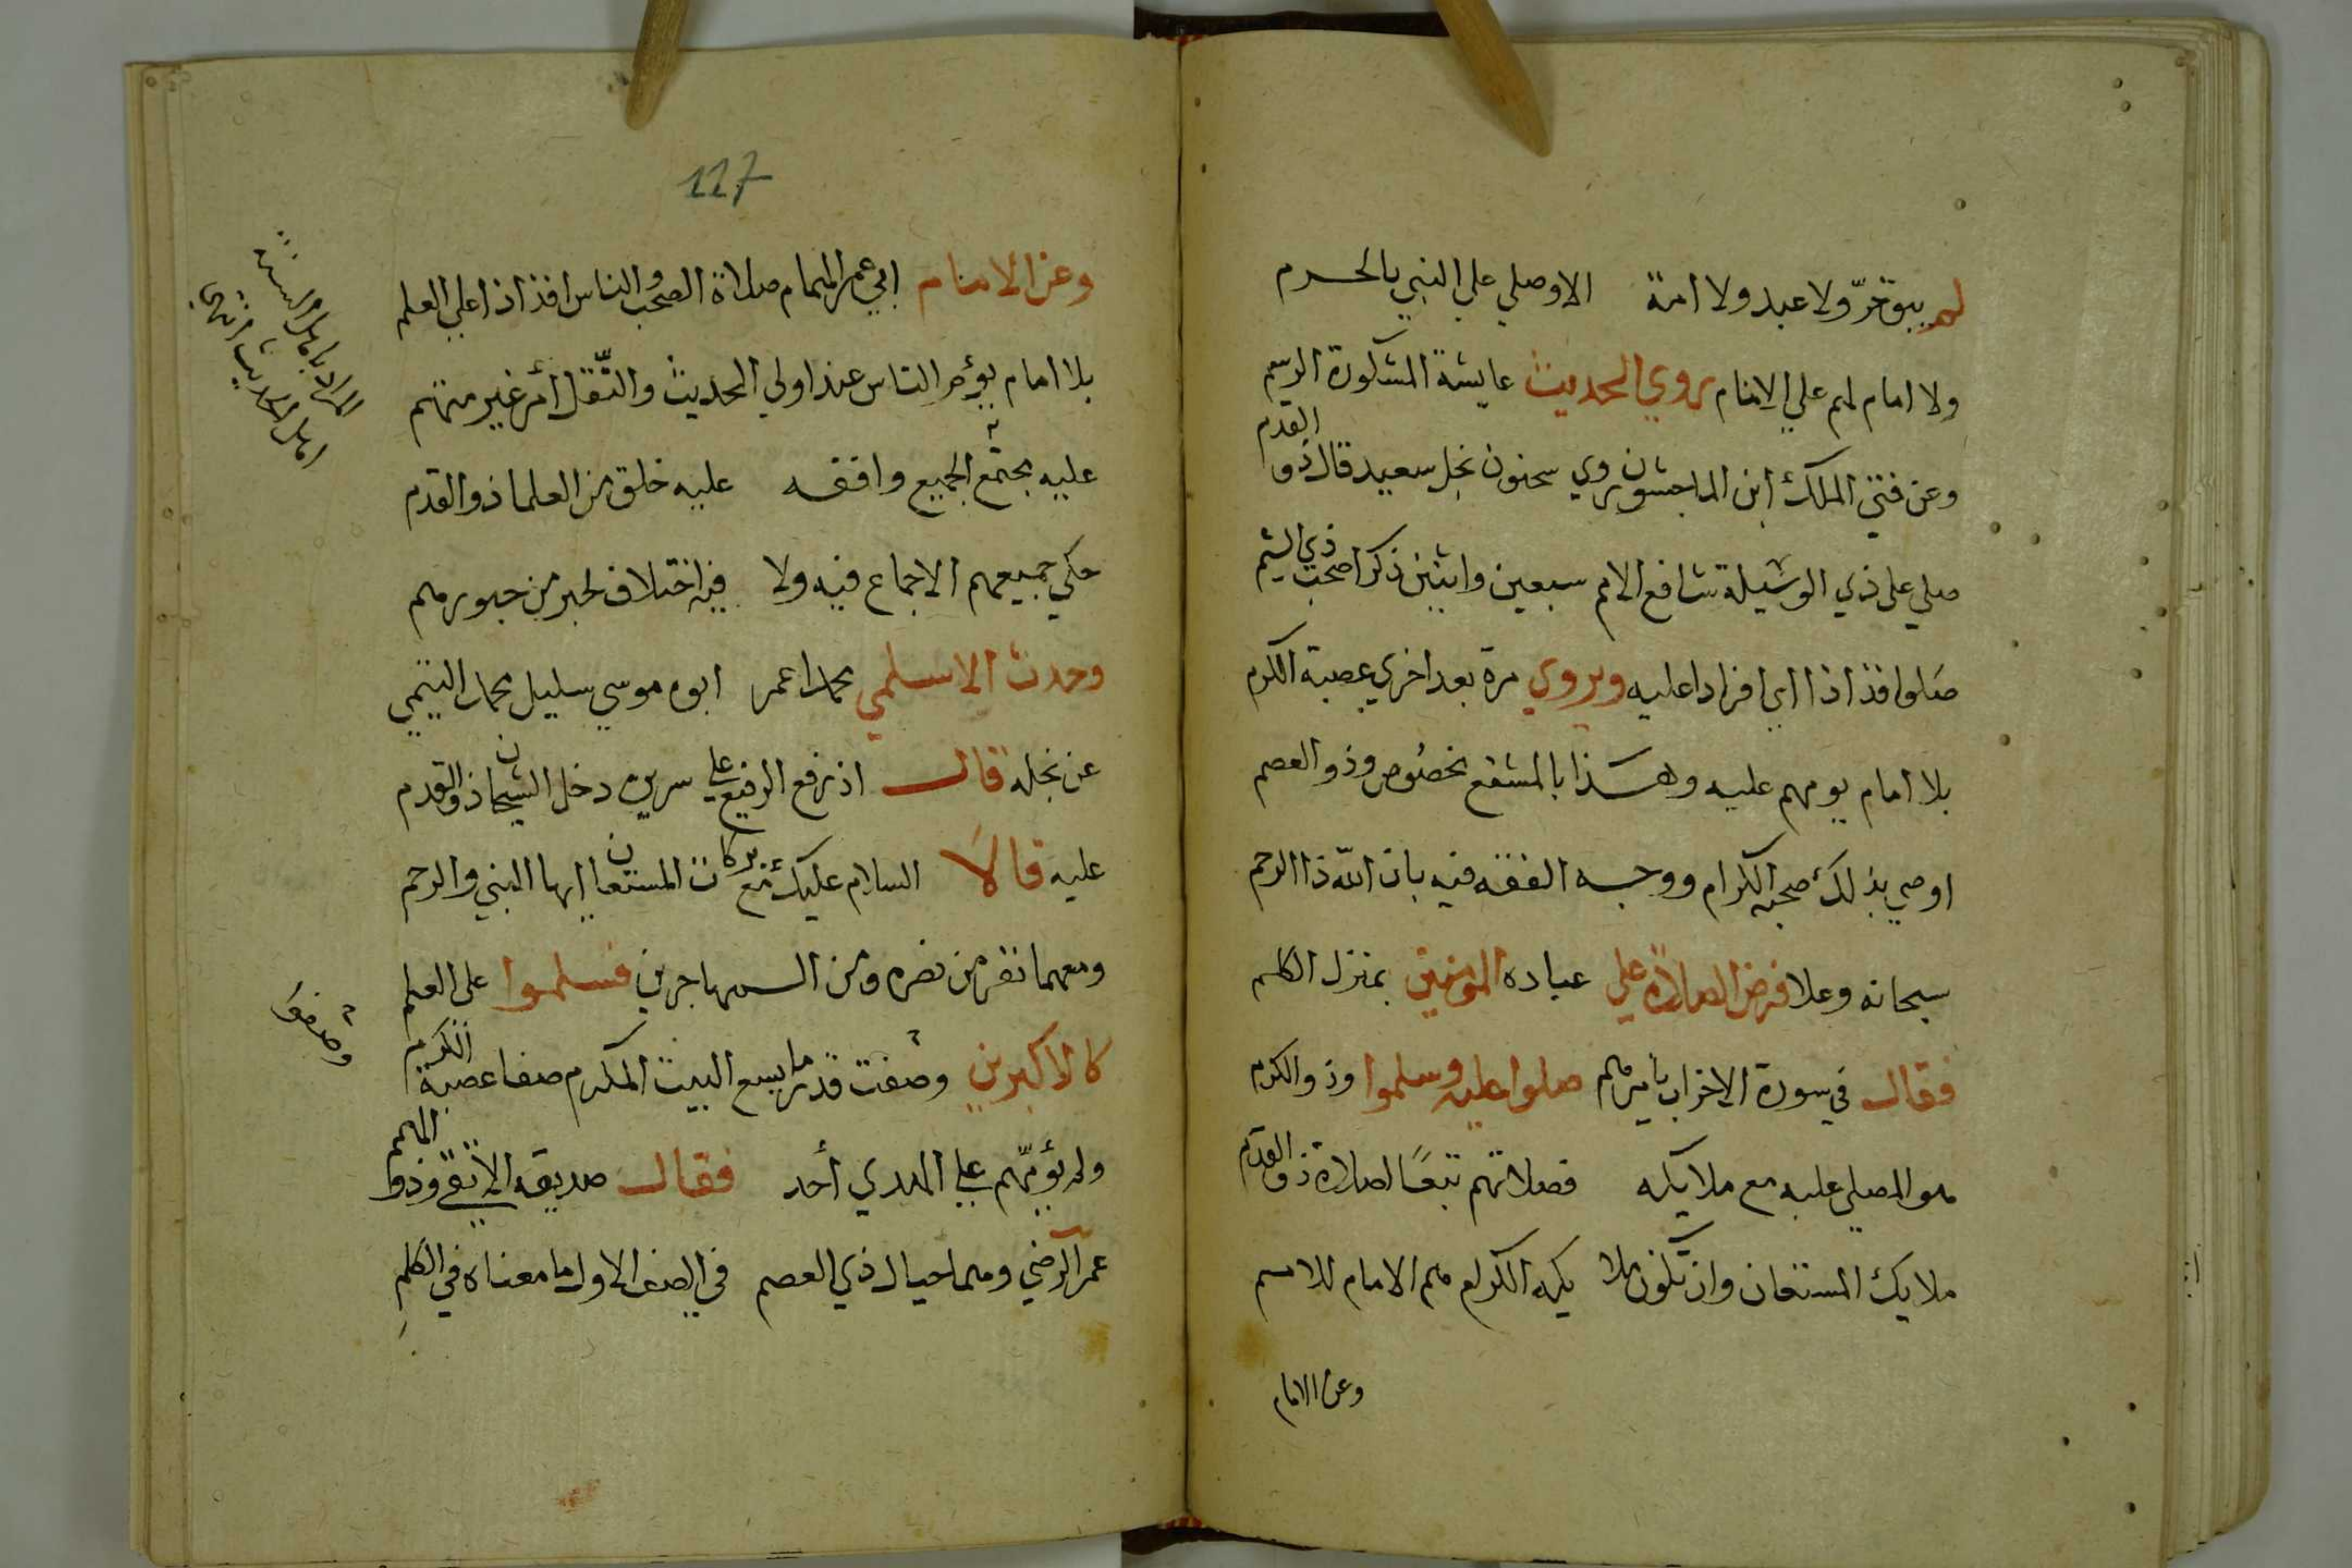 لم يبق حرّ ولا عبد ولا امة الا وصلي علي النبي بالحرم
ولا امام لهم علي الامام يروي الحديث عايشة المشكورة الرسم
وعن فتي الملك ابن الماجشون روي سحنون نجل سعيد قال ذو القدم
صلي على ذي الوسيلة شافع الامم سبعين واثنين ذكرا صحب ذي الشيم
صلوا افذاذا اي افرادا عليه ويروي مرة بعد اخري عصبة الكرم
بلا امام يومهم عليه وهذا بالمشفع مخصوص وذو العصم
اوصي بذلك صحبه الكرام ووجه الفقه فيه بان الله ذا الرحم
سبحانه وعلا فرض الصلاة علي عباده المومنين بمنزل الكلم
فقال في سورة الاحزاب يامرهم صلوا عليه وسلموا وذو الكرم
هو المصلي عليه مع ملايكه فصلاتهم تبعًا لصلاة ذو القدم
ملايك المستعان وان تكون ملا يكه الكرام هم الامام للامم
وعن الامام
117
وعن الامام ابي عمر الهمام صلاة الصحب والناس افذاذا علي العلم
بلا امام يؤم الناس عند اولي الحديث والنّقل أمر غير متهم
عليه يجتمع الجميع وافقه عليه خلق من العلما ذو القدم
حكي جميعهم الاجماع فيه ولا فيه اختلاف لحبر من حبورهم
وحدث الاسلمي محمد اعمر ابوه موسي سليل محمد التيمي
عن نجله قال اذ رفع الرفيع علي سريره دخل الشيخان ذو القدم
عليه قالَا السلام عليك مع بركات المستعان ايها النبي والرحم
ومعهما نفر من نصره ومن المهاجرين فسلموا على العلم
كالاكبرين وصفت قدر ما يسع البيت المكرم صفا عصبة الكرم
ولم يؤمّهم علي الهدي أحد فقال صديقه الأتقي وذو الهمم
عمر الرضي وهما حيال ذي العصم في الصف الاول ما معناه في الكلم
اهل الحديث
وصفوا